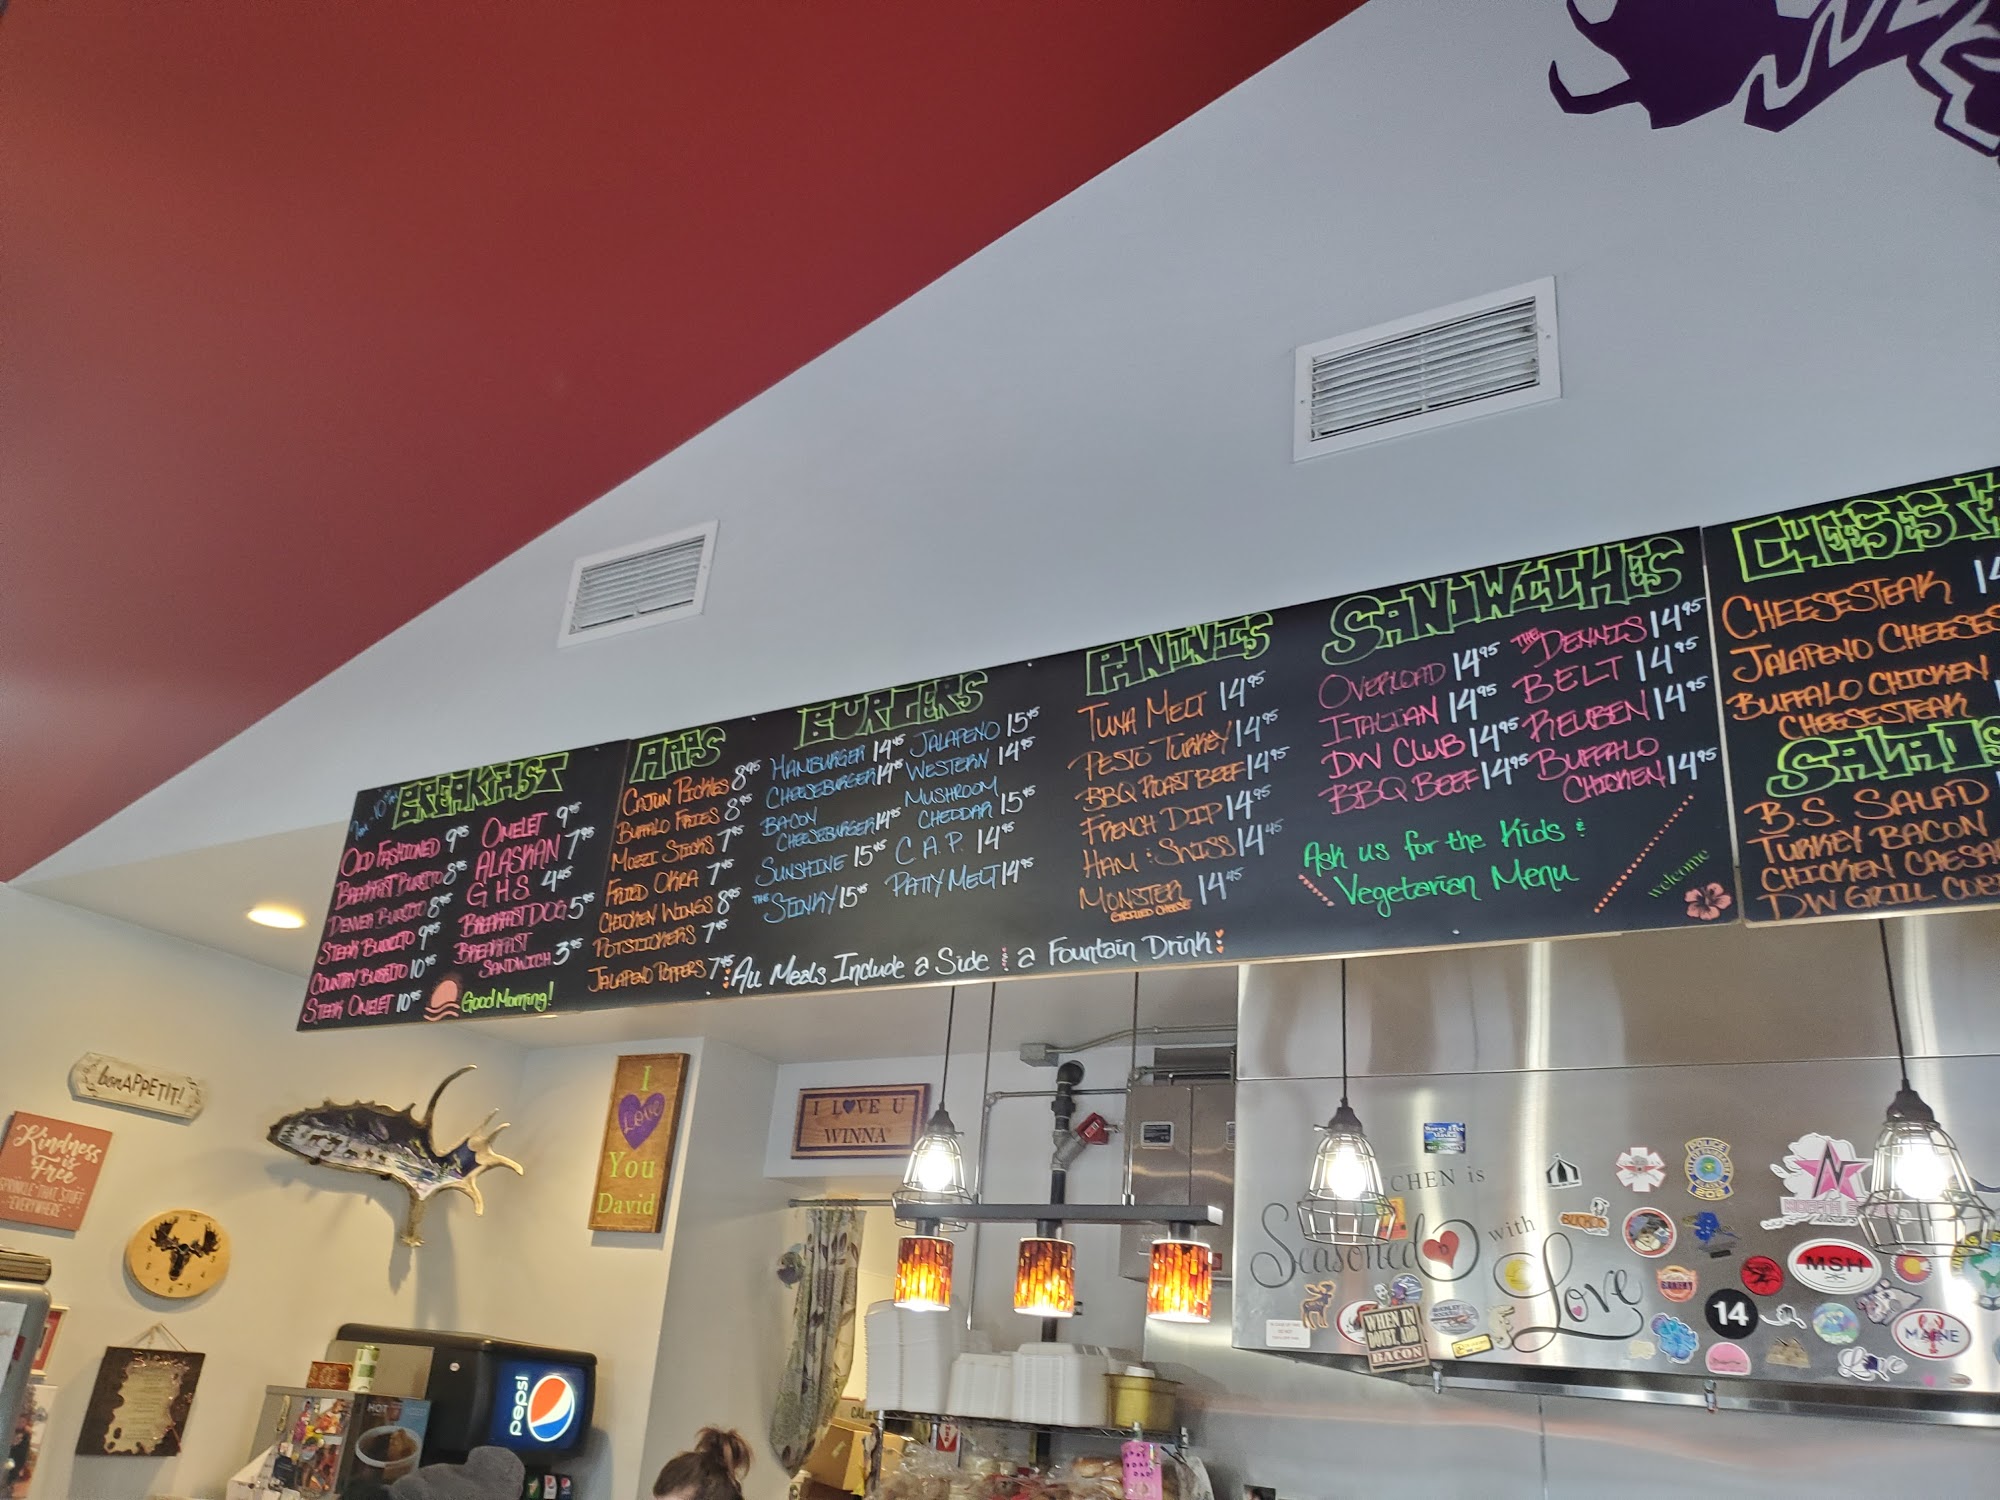 BREAKFAST
OLD FASHIONED 9⁹⁵
BREAKFAST BURRITO 8⁹⁵
DENVER BURRITO 8⁹⁵
STEAK BURRITO 9⁹⁵
COUNTRY BURRITO 10⁹⁵
STEAK OMELET 10⁹⁵
OMELET 9⁹⁵
ALASKAN 7⁹⁵
G.H.S. 4⁹⁵
BREAKFAST DOG 5⁹⁵
BREAKFAST
SANDWICH 3⁹⁵
Good Morning!
APPS
CAJUN PICKLES 8⁹⁵
BUFFALO FRIES 8⁹⁵
MOZZI STICKS 7⁹⁵
FRIED OKRA 7⁹⁵
CHICKEN WINGS 8⁹⁵
POTSTICKERS 7⁹⁵
JALAPENO POPPERS 7⁹⁵
BURGERS
HAMBURGER 14⁹⁵
CHEESEBURGER 14⁹⁵
BACON
CHEESEBURGER 14⁹⁵
SUNSHINE 15⁹⁵
THE STINKY 15⁹⁵
JALAPENO 15⁹⁵
WESTERN 14⁹⁵
MUSHROOM
CHEDDAR 15⁹⁵
C.A.P. 14⁹⁵
PATTY MELT 14⁹⁵
PANINIS
TUNA MELT 14⁹⁵
PESTO TURKEY 14⁹⁵
BBQ ROAST BEEF 14⁹⁵
FRENCH DIP 14⁹⁵
HAM & SWISS 14⁹⁵
MONSTER 14⁹⁵
GRILLED CHEESE
All Meals Include a Side & a Fountain Drink
SANDWICHES
OVERLOAD 14⁹⁵
ITALIAN 14⁹⁵
DW CLUB 14⁹⁵
BBQ BEEF 14⁹⁵
THE DENNIS 14⁹⁵
BELT 14⁹⁵
REUBEN 14⁹⁵
BUFFALO
CHICKEN 14⁹⁵
Ask us for the Kids &
Vegetarian Menu
welcome
CHEESESTE
CHEESESTEAK 14
JALAPENO CHEESES
BUFFALO CHICKEN
CHEESESTEAK
SALADS
B.S. SALAD
TURKEY BACON
CHICKEN CAESA
DW GRILL COB
bon APPETIT!
Kindness
is
Free
SPRINKLE THAT STUFF
EVERYWHERE
I
Love
You
David
I LOVE U
WINNA
pepsi
HOT
CHEN is
Seasoned with
Love
WHEN IN
DOUBT ADD
BACON
POLICE
14
MSH
MAINE
Love